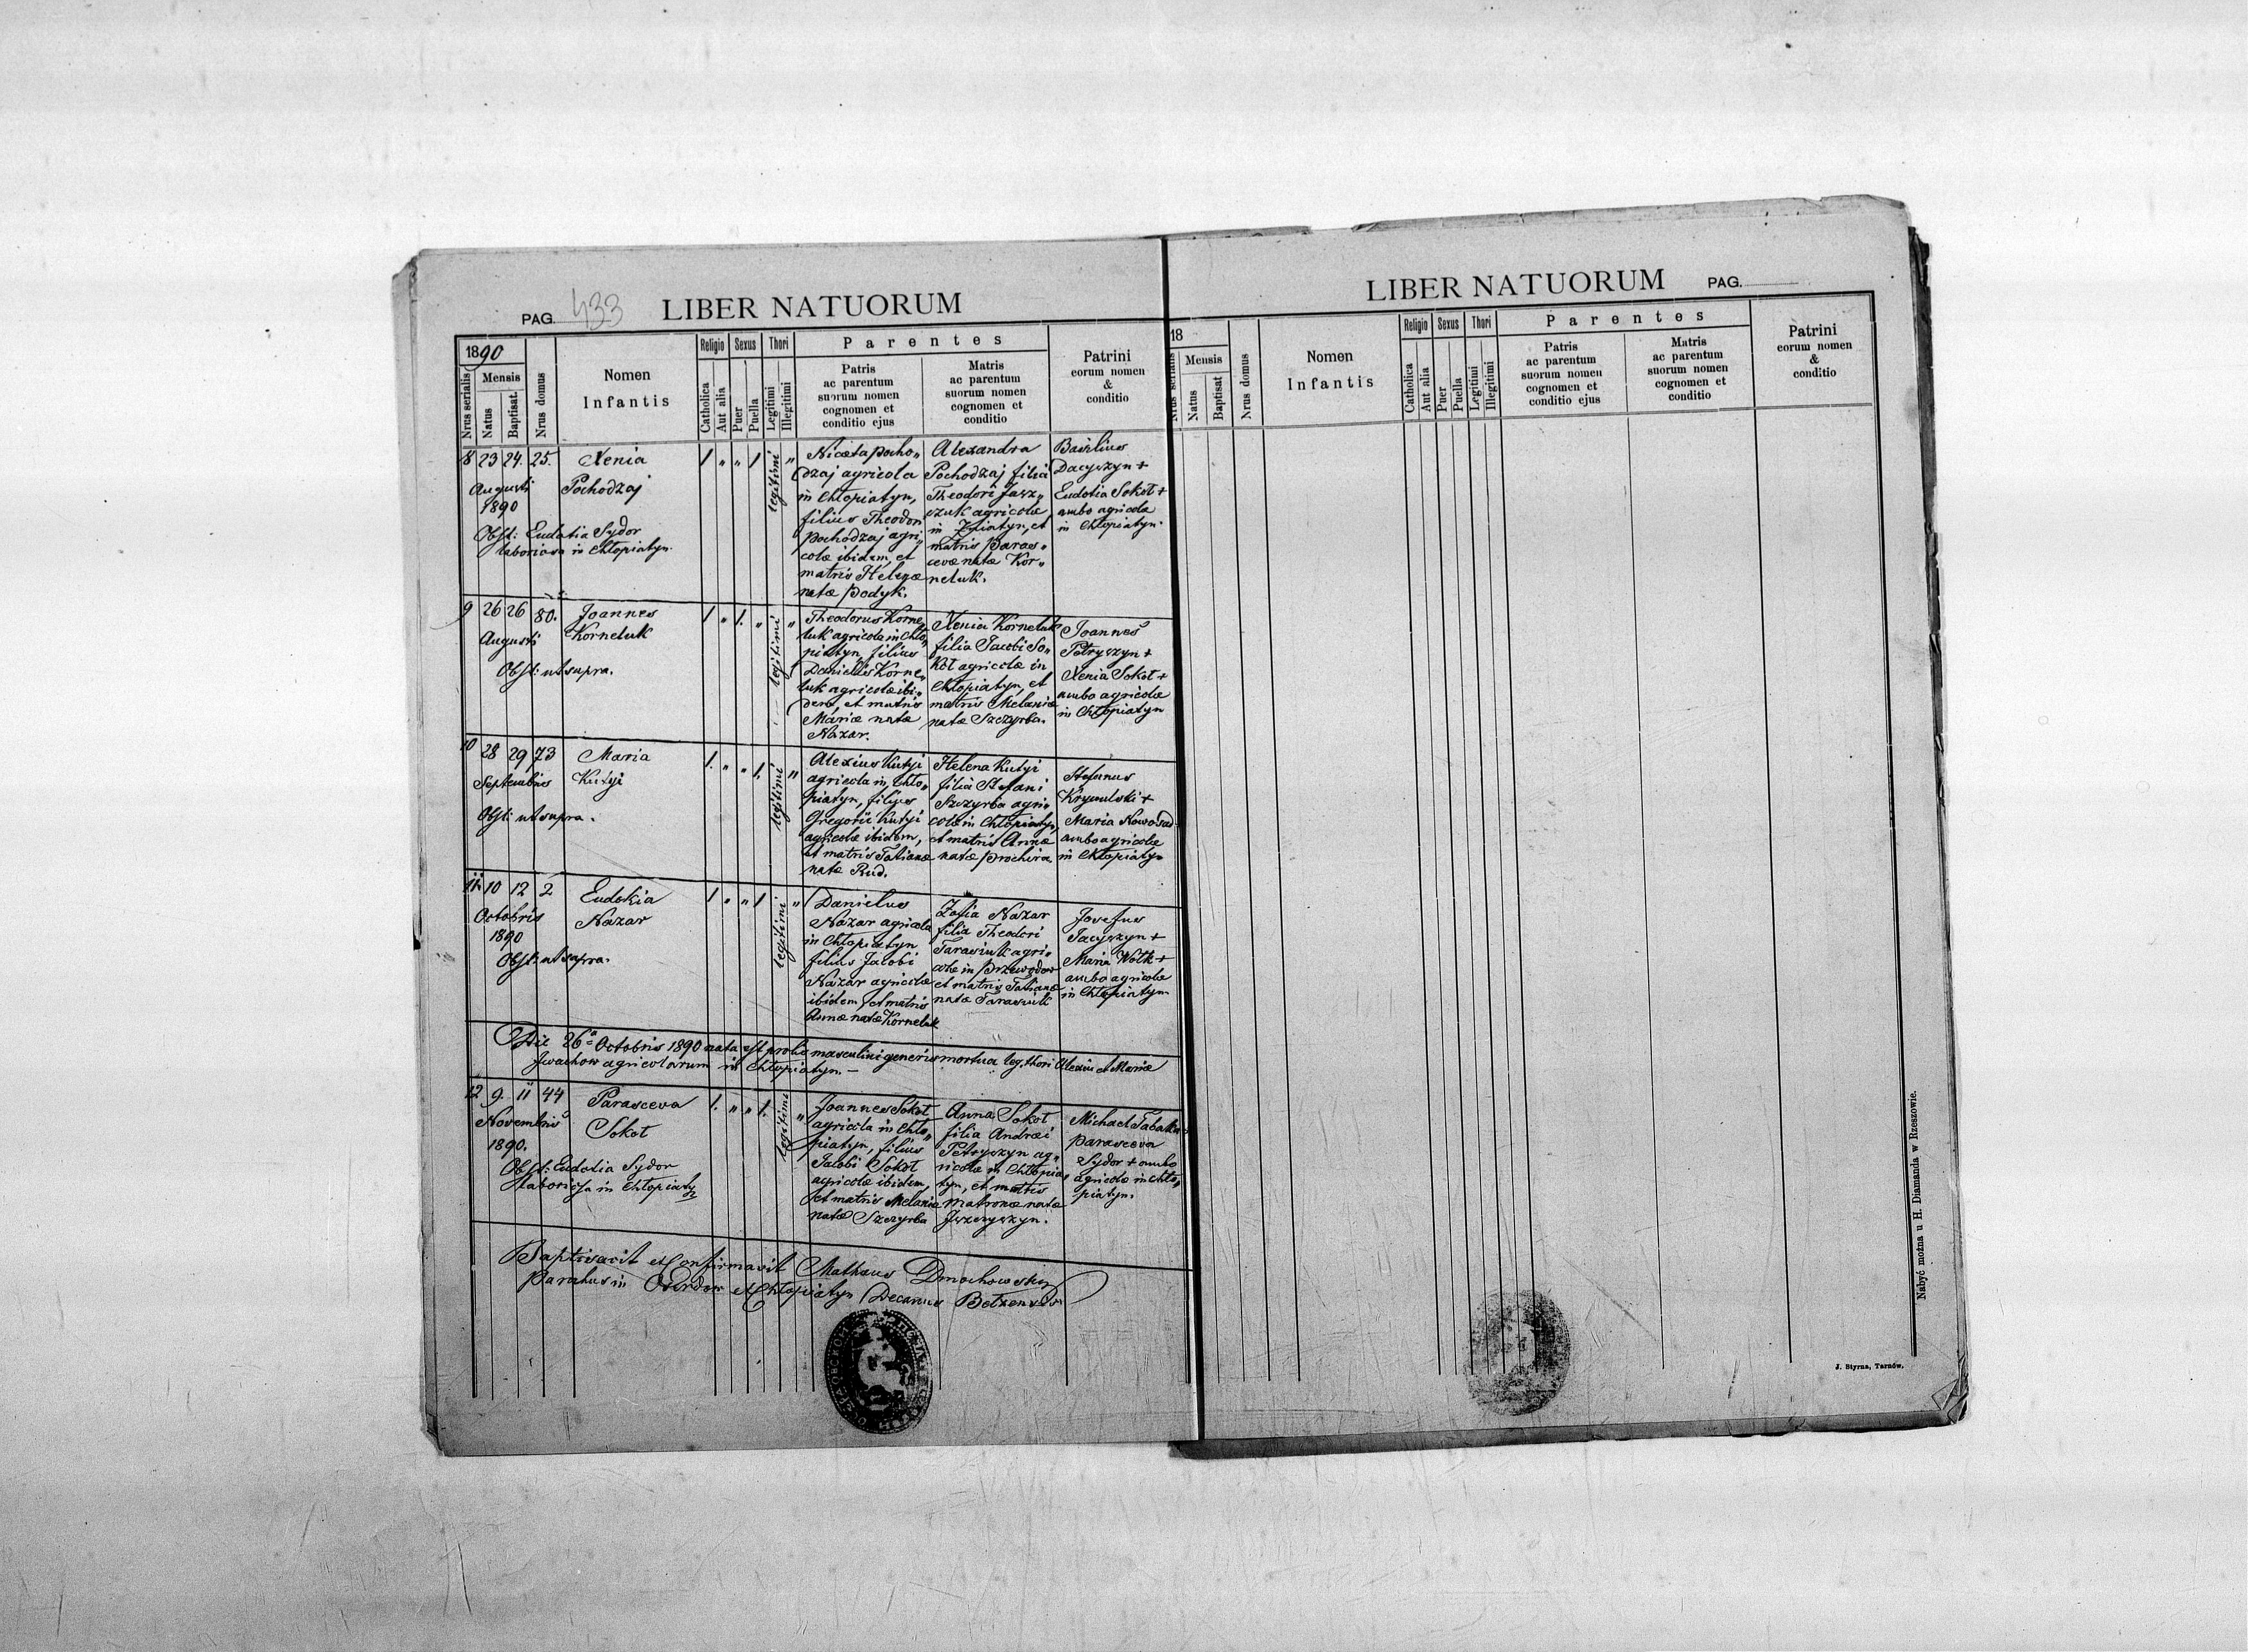 PAG. 433 LIBER NATUORUM
1890
Nrus serialis
Mensis
Natus
Baptisat.
Nrus domus
Nomen
Infantis
Religio
Catholica
Aut alia
Sexus
Puer
Puella
Thori
Legitimi
Illegitimi
Parentes
Patris
ac parentum
suorum nomen
cognomen et
conditio ejus
Matris
ac parentum
suorum nomen
cognomen et
conditio
Patrini
eorum nomen
&
conditio
8 23 24. 25.
Augusti
1890
Obst: Eudotia Sydor
laboriosa in Chłopiatyn.
Xenia
Pochodzaj
1 " " 1 legitimi "
Niceta Pocho„
dzaj agricola
in Chłopiatyn,
filius Theodori
Pochodzaj agri„
colæ ibidem, et
matris Helenæ
natæ Dodyk.
Alexandra
Pochodzaj filia
Theodori Jasz„
czuk agricolæ
in Żniatyn, et
matris Paras„
cevæ natæ Kor„
neluk.
Basilius
Dacyszyn +
Eudotia Sokoł +
ambo agricolæ
in Chłopiatyn.
9 26 26 80.
Augusti
Obst: ut supra.
Joannes
Korneluk
1 " 1. " legitimi "
Theodorus Korne„
luk agricola in Chło„
piatyn, filius
Danielis Korne„
luk agricolæ ibi„
dem, et matris
Mariæ natæ
Nazar.
Xenia Korneluk
filia Jacobi So„
kół agricolæ in
Chłopiatyn, et
matris Melaniæ
natæ Szczyrba.
Joannes
Petryszyn +
Xenia Sokoł +
ambo agricolæ
in Chłopiatyn
10 28 29 73
Septembris
Obst: ut supra.
Maria
Kutyi
1. " " 1. legitimi "
Alexius Kutyi
agricola in Chło„
piatyn, filius
Gregorii Kutyi
agricolæ ibidem,
et matris Tatianæ
natæ Rud.
Helena Kutyi
filia Stefani
Szczyrba agri„
colæ in Chłopiatyn,
et matris Annæ
natæ Prochira
Stefanus
+
Maria Nowosad
ambo agricolæ
in Chłopiatyn
11. 10 12 2
Octobris
1890
Obst: ut supra.
Eudokia
Nazar
1 " " 1 legitimi "
Danielus
Nazar agricola
in Chłopiatyn
filius Jacobi
Nazar agricolæ
ibidem, et matris
Annæ natæ Korneluk
Zofia Nazar
filia Theodori
Tarasiuk agri„
colæ in Przewodow
et matris Tatianæ
natæ Tarasiuk
Josefus
Jacyszyn +
Maria Wołk +
ambo agricolæ
in Chłopiatyn.
Die 26ª Octobris 1890 nata est proles masculini generis mortua leg. thori Alexii et Mariæ
Iwachow agricolarum in Chłopiatyn. —
12 9. 11 44
Novembris
1890.
Obst: Eudotia Sydor
laboriosa in Chłopiatyn
Parasceva
Sokoł
1. " " 1. legitimi "
Joannes Sokoł
agricola in Chło„
piatyn, filius
Jacobi Sokoł
agricolæ ibidem,
et matris Melaniæ
natæ Szczyrba
Anna Sokoł
filia Andræi
Petryszyn ag„
ricolæ in Chłopia„
tyn, et matris
Matronæ natæ
Iszczyszyn.
Michael Tabaka
Parasceva
Sydor + ambo
agricolæ in Chło„
piatyn.
Baptisavit et Confirmavit Matheus Dmochowsky
Parochus in Oserdow et Chłopiatyn Decanus Bełzensis
LIBER NATUORUM PAG.
18
Nrus serialis
Mensis
Natus
Baptisat
Nrus domus
Nomen
Infantis
Religio
Catholica
Aut alia
Sexus
Puer
Puella
Thori
Legitimi
Illegitimi
Parentes
Patris
ac parentum
suorum nomen
cognomen et
conditio ejus
Matris
ac parentum
suorum nomen
cognomen et
conditio
Patrini
eorum nomen
&
conditio
Nabyć można u H. Diamanda w Rzeszowie.
J. Styrna, Tarnów.